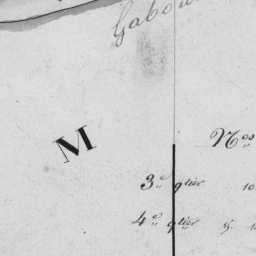 Gabou
M
Nos
3e qtier 10
4e qtier 5